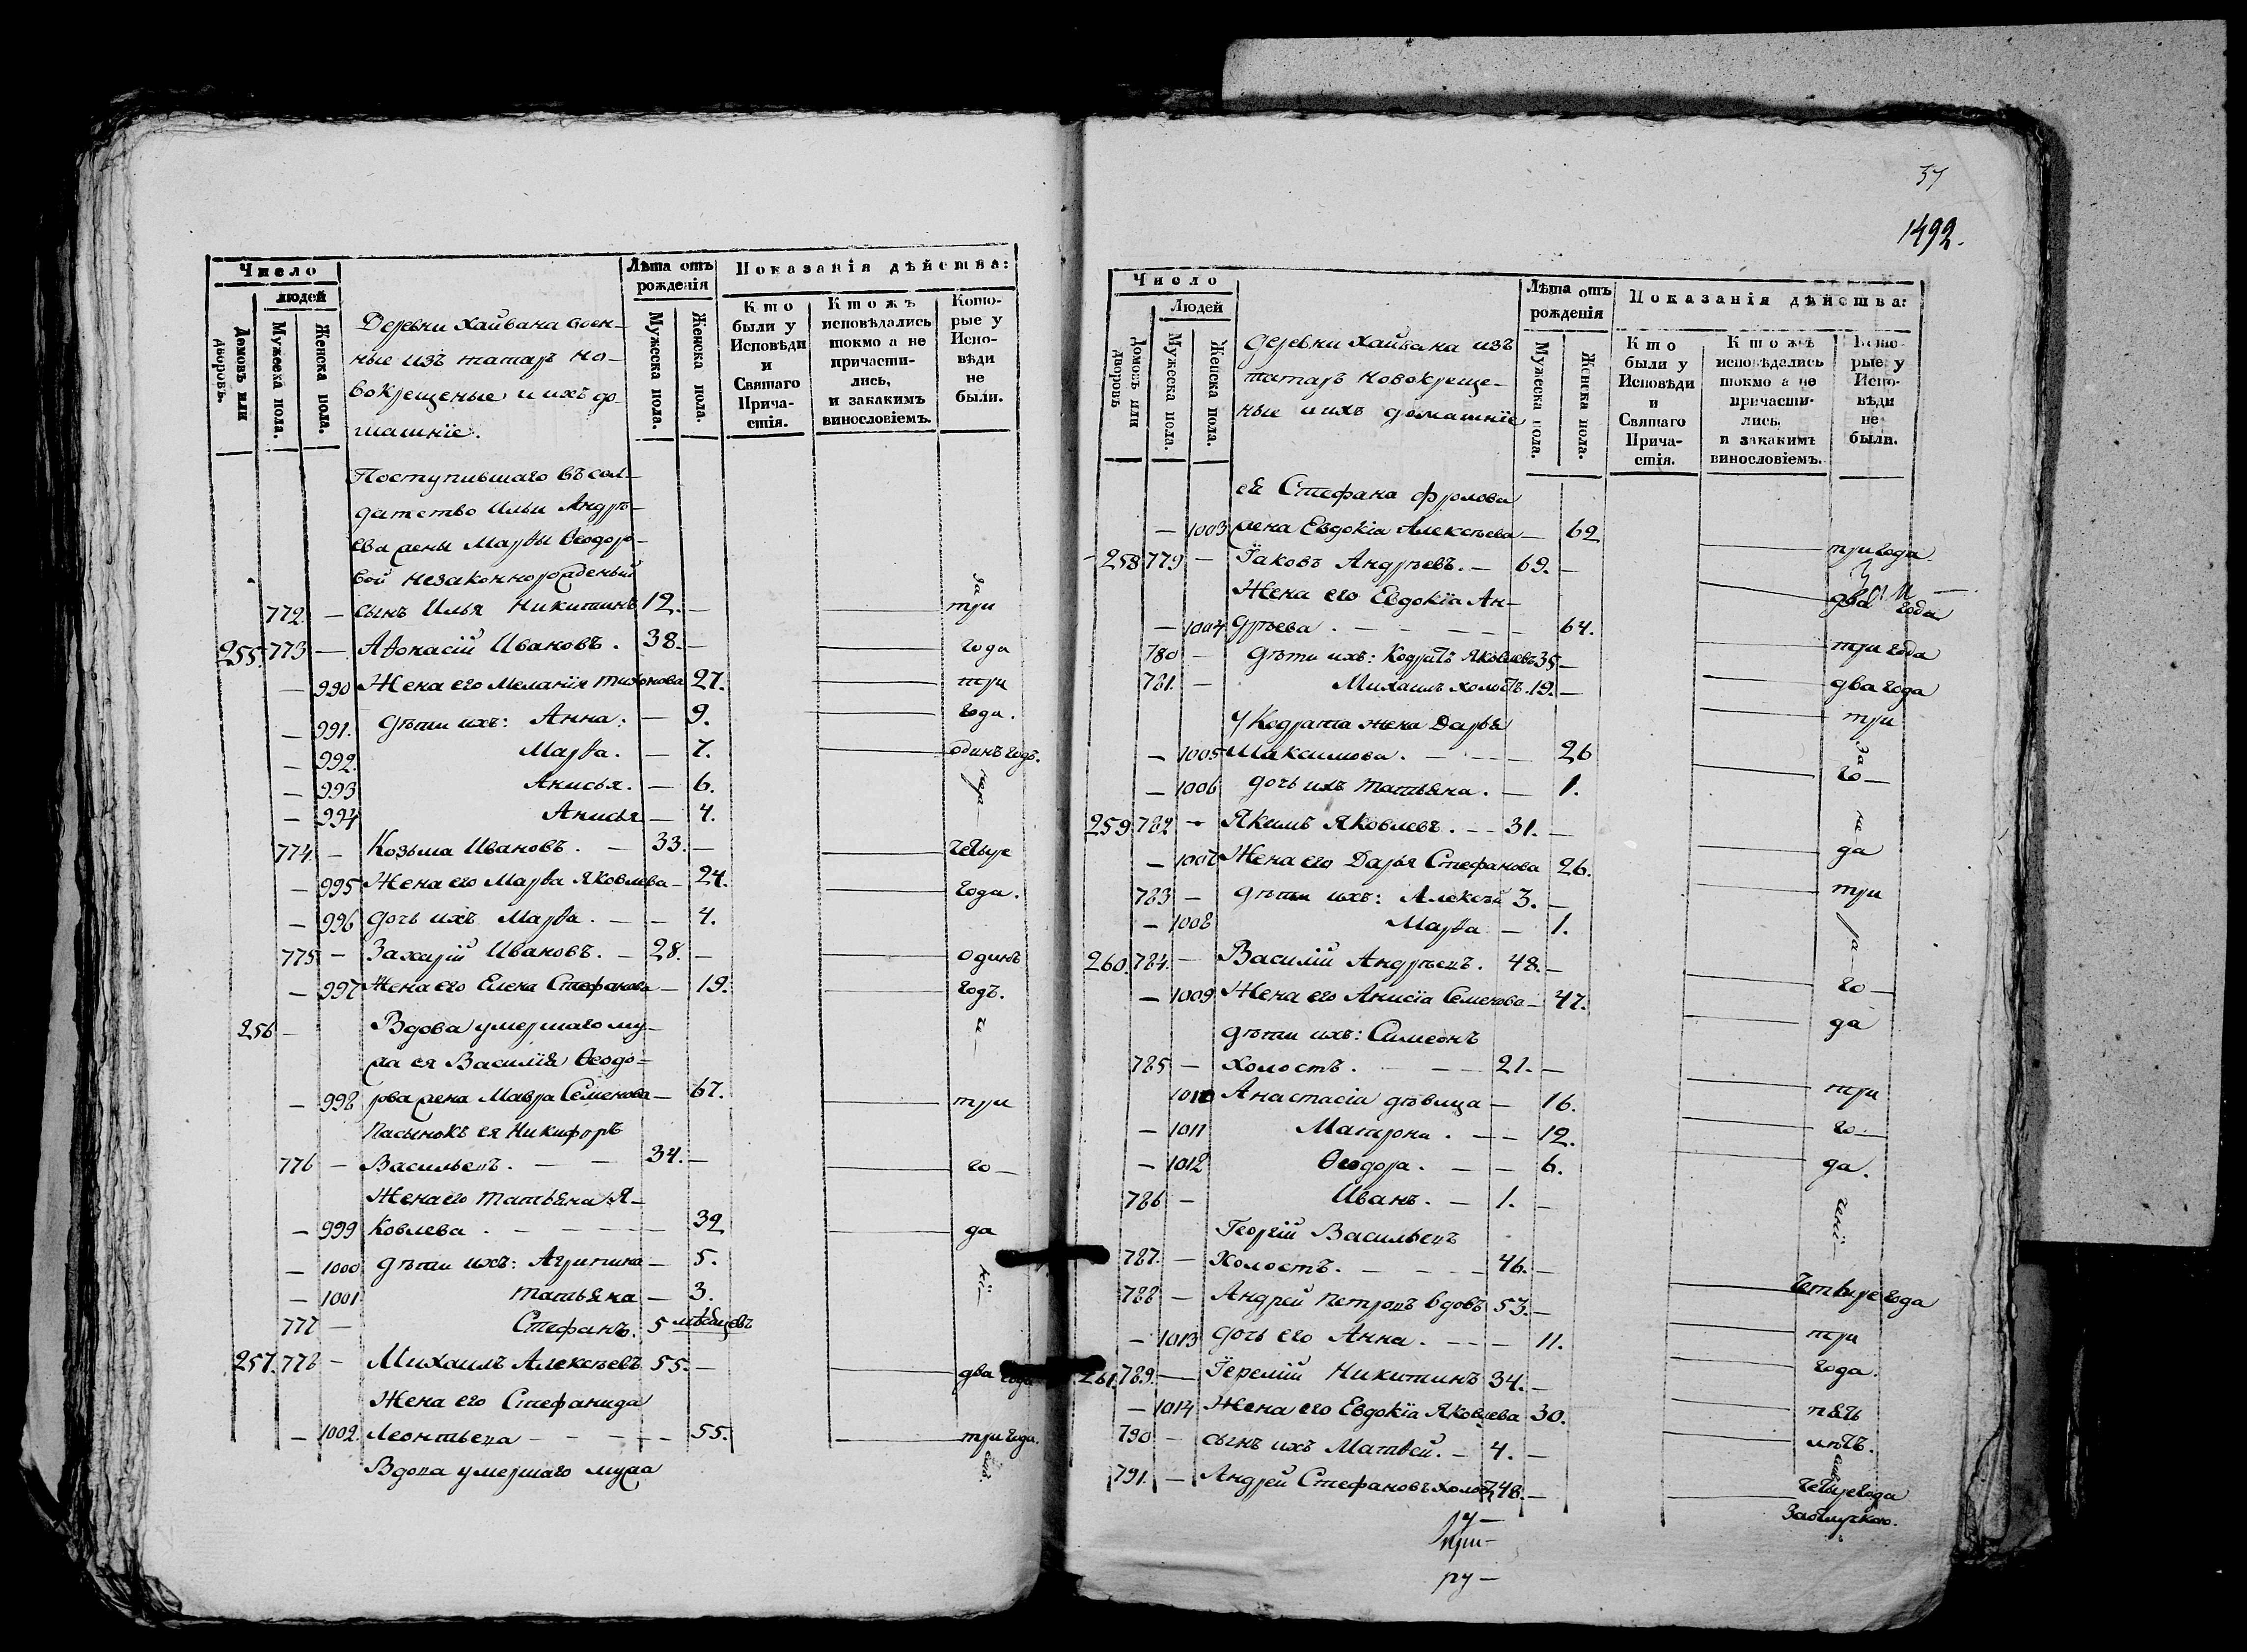 Число
Лѣта отъ рожденія
Показанія дѣйства:
людей
Домовъ или дворовъ.
Мужеска пола.
Женска пола.
Деревни Хайвана воен-
ные изъ татаръ но-
вокрещеные и ихъ до-
машніе.
Мужеска пола.
Женска пола.
Кто были у Исповѣди и Святаго Прича-стія.
Ктожъ исповѣдались токмо а не причасти-лись, и закакимъ винословіемъ.
Кото-рые у Испо-вѣди не были.
Поступившаго въ сол-
датство Ильи Андрѣ-
ева жены Марѳы Ѳеодоро-
вой незаконнорожденый
772. — сынъ Илья Никитинъ 12. — три
255. 773 — Аѳонасій Ивановъ. 38. — года
— 990 Жена его Меланія Тихонова 27. три
— 991. дѣти ихъ: Анна. — 9. года.
— 992. Марѳа. — 7. одинъ годъ.
— 993 Анисья. — 6.
— 994 Анисья — 4.
774 — Козьма Ивановъ. — 33. — четыре
— 995 Жена его Марѳа Яковлева — 24. года.
— 996 дочь ихъ Марѳа. — — 4.
775 — Захарій Ивановъ. — 28. — одинъ
— 997 Жена его Елена Стефанова — 19. годъ.
256 — Вдова умершаго му-
жа ея Василія Ѳеодо-
— 998 рова жена Мавра Семенова — 67. три
Пасынокъ ея Никифоръ
776 — Васильевъ. — — 34. — го —
Жена его Татьяна Я-
— 999 ковлева. — — — — 32 да
— 1000 дѣти ихъ: Агрипина — 5.
— 1001 Татьяна — 3.
777 — Стефанъ. 5 мѣсяцевъ
257. 778 — Михаилъ Алексѣевъ 55. — два года
Жена его Стефанида
— 1002. Леонтьева — — — — 55. три года.
Вдова умершаго мужа
37
1492.
Число
Лѣта отъ рожденія
Показанія дѣйства:
Людей
Домовъ или дворовъ
Мужеска пола.
Женска пола.
Деревни Хайвана изъ
татаръ новокреще-
ные и ихъ домашніе
Мужеска пола.
Женска пола.
Кто были у Исповѣди и Святаго Прича-стія.
Ктожъ исповѣдались токмо а не причасти-лись, и закакимъ винословіемъ.
Кото-рые у Испо-вѣди не были.
ея Стефана Фролова
— 1003 жена Евдокіа Алексѣева — 62 три года.
258 779 — Іаковъ Андрѣевъ. — 69. — два года
Жена его Евдокіа Ан-
— 1004 дрѣева. — — — — — 64. три года
780 — дѣти ихъ: Кодратъ Яковлевъ 35 — два года
781. — Михаилъ холостъ. 19. — три
У Кодрата жена Дарья
— 1005 Максимова. — — — — 26 го —
— 1006 дочь ихъ Татьяна. — 1.
259 782 — Якимъ Яковлевъ. — — 31. — да
— 1007 Жена его Дарья Стефанова 26. три
783 — дѣти ихъ: Алексѣй 3. —
— 1008 Марѳа — 1.
260. 784. — Василій Андрѣевъ. 48. — го —
— 1009 Жена его Анисіа Семенова — 47. да
дѣти ихъ: Симеонъ
785 — холостъ. — — — 21. — три
1010 Анастасіа дѣвица — 16. го —
— 1011 Матрона. — — 12. да.
— 1012 Ѳеодора. — — 6.
786 — Иванъ. — 1. —
Георгій Васильевъ
787. — Холостъ. — — — 46. — четыре года
788 — Андрей Петровъ вдовъ 53. — три
— 1013 дочь его Анна. — — — 11. года.
261. 789. — Іеремій Никитинъ 34. — пять
— 1014 Жена его Евдокіа Яковлева 30. лѣтъ.
790 — сынъ ихъ Матвей. — 4. —
791. — Андрей Стефановъ холостъ 48. — четыре года
За отлучкою.
ру —